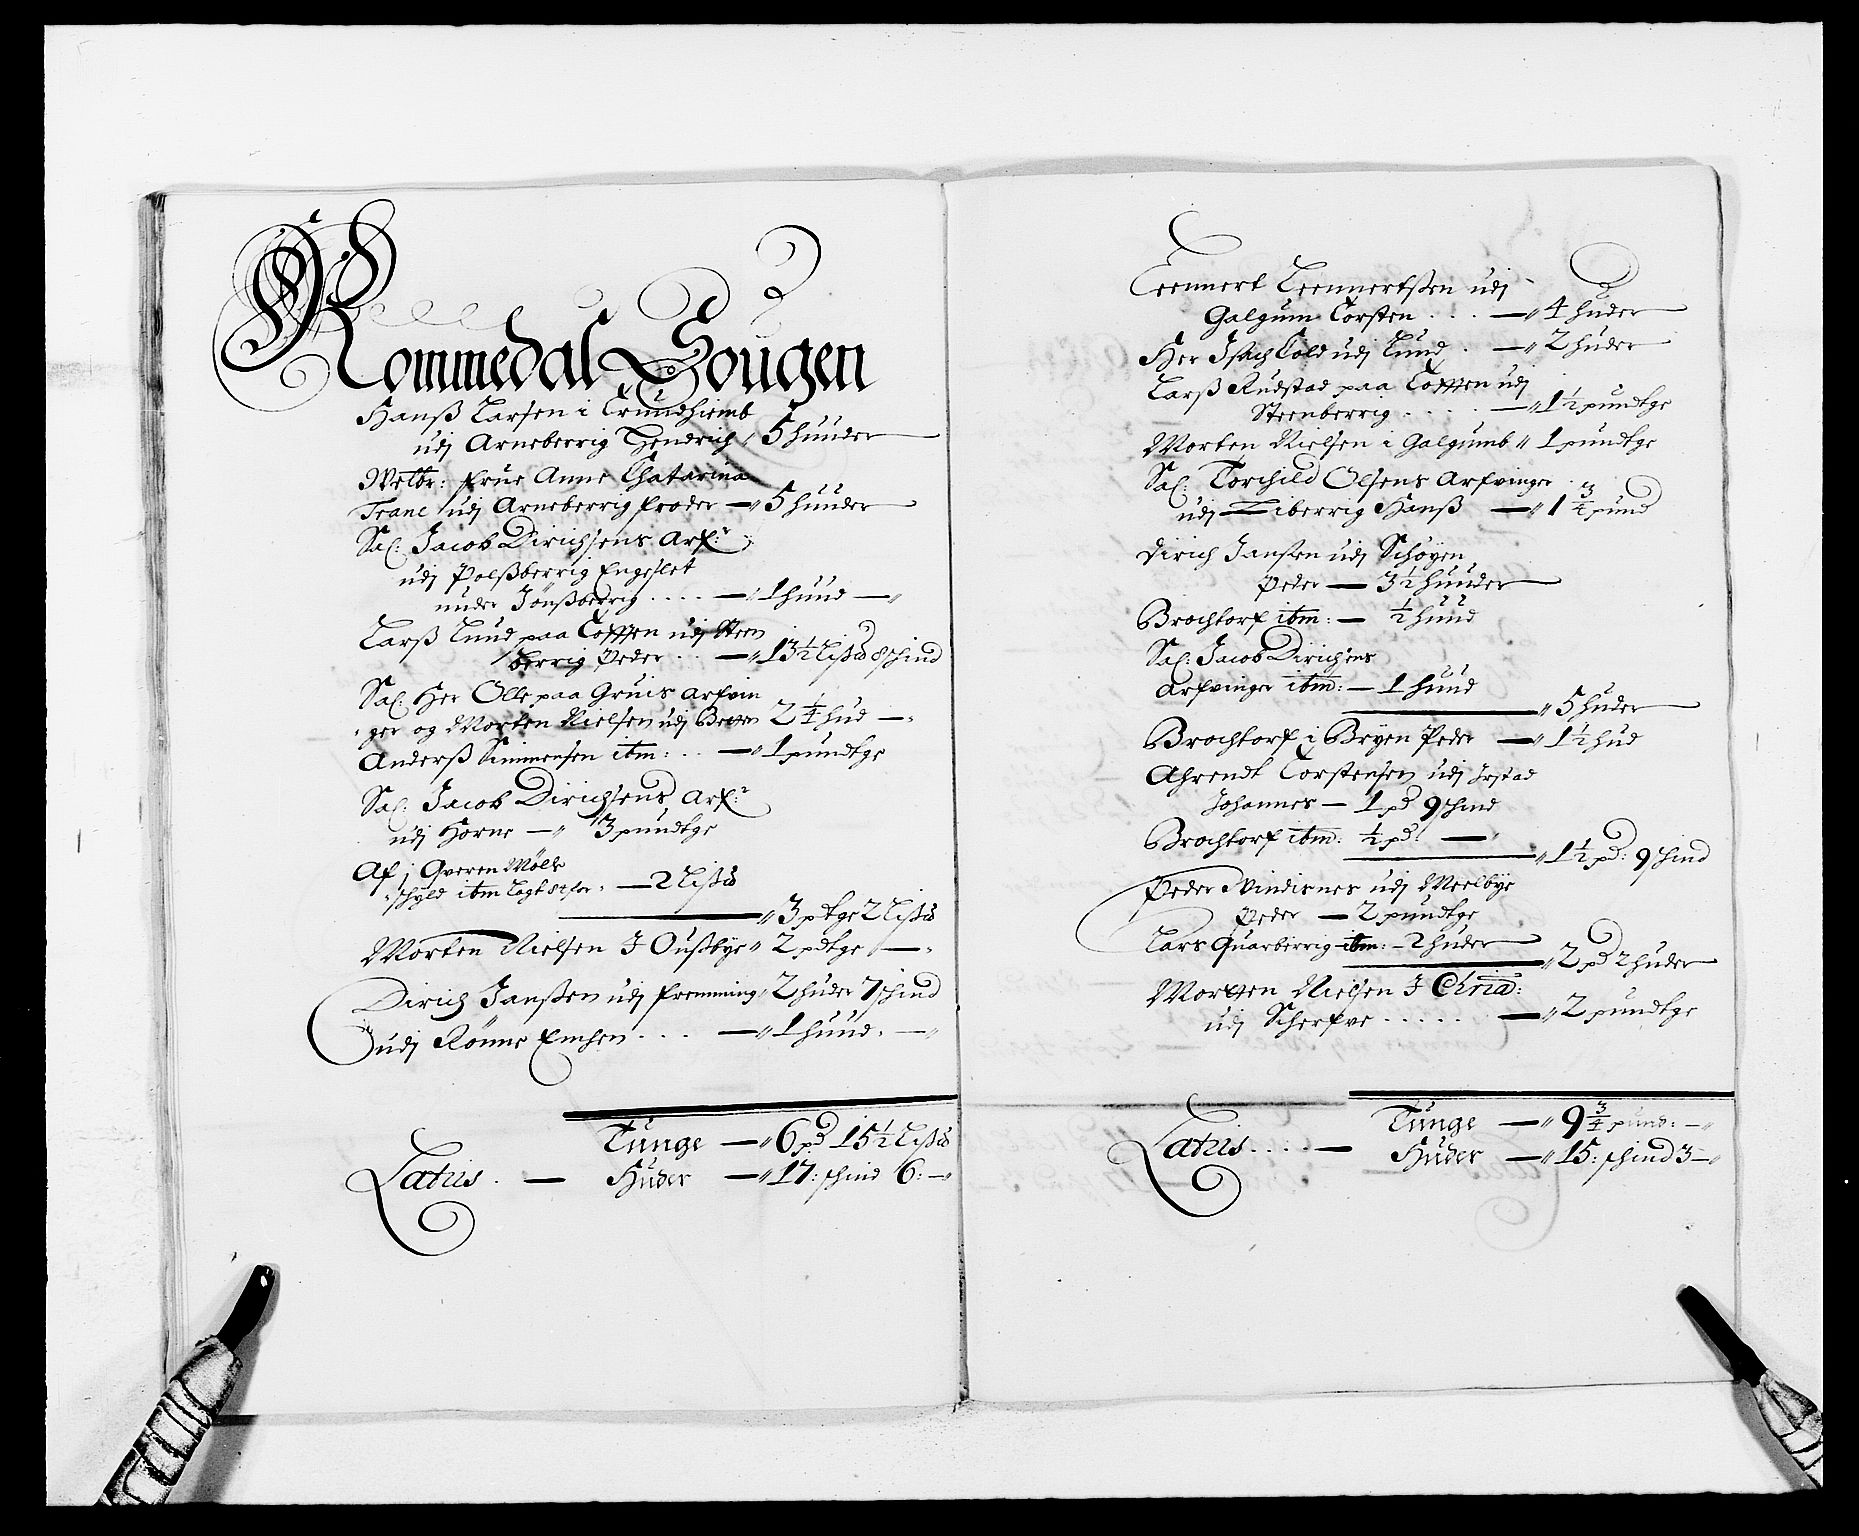 Rommedal Sougen
Hanß Larsen i Trundhiemb
udj Arneberrig Hendrich „ 5 huuder
Welbr: frue Anne Chatarina
Tranc udj Arneberrig Peder — „ 5 huuder
Sal: Jacob Dirichsens Arf:r
udj Polßberrig Engeslet
under Jönßberrig . . . . — „ 1 huud — „
Larß Lund paa Tofften udj Steen
berrig Peder . . — „ 13½ Lispd 8 schind
Sal: Her Olle paa Gruis arfvin
ger og Morten Nielsen udj 2¼ hud — „
Anderß Simmensen itm: . . — „ 1 pundtge
Sal: Jacob Dirichsens Arf:r
udj Horne — „ 3 pundtge
Af j Qveren Mölle
schyld itm — 2 Lispd
„ 3 pdtge 2 Lispd
Morten Nielsen J Oußbye „ 2 pdtge — „
Dirich Janßen udj fremming „ 2 huder 7 schind
udj Rönne Emhen . . . — „ 1 huud. — „
Tunge — „ 6 pd 15½ Lispd
Latus . — Huder — „ 17: schind 6: — „
Leennert Leennertßen udj
Galgum Torsten . . . — „ 4 huder
Her Isach Cold udj Lund . — „ 2 huder
Larß Rudstad paa Tofften udj
Steenberrig . . . . — „ 1½ pundtge
Morten Nielsen i Galgumb „ 1 pundtge
Sal: Torchild Olsens Arfvinger
udj Liberrig Hanß — „ 1¾ pund
Dirich Janßen udj Schöyen
Peder — 3½ huuder
Brochtorf itm: — ½ huud
Sal: Jacob Dirichsens
Arfvinger itm: — 1 huud
„ 5 huder
Brochtorf i Bryen Peder — „ 1½ hud
Ahrendt Torstensen udj Jrstad
Johannes — 1 pd 9 schind
Brochtorf itm: ½ pd: — „
„ 1½ pd: 9 schind
Peder Vindisnes udj Meelbye
Peder — 2 pundtge
Lars Quarberrig itm: — 2 huder
„ 2 pd 2 huder
Morten Nielsen J Chria:
udj Scherfve . . . . . . — „ 2 pundtge
Tunge — „ 9¾ pund: — „
Latus . . . . — Huder — „ 15: schind 3 — „